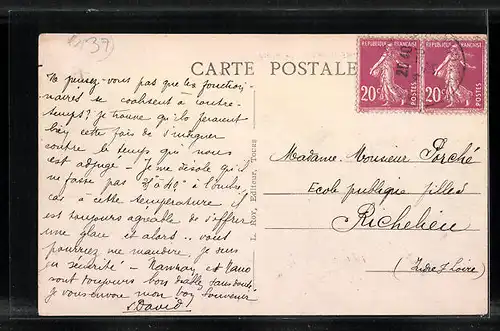 (37)
CARTE POSTALE
Ne pensez-vous pas que les fonction-
naires se coalisent à contre-
temps? Je trouve qu'ils feraient
bien cette fois de s'insurger
contre le temps qui nous
est adjugé - Je me désole qu'il
ne fasse pas 35 à 40° à l'ombre
car à cette température il
est toujours agréable de s'offrir
une glace et alors.. vous
pourriez me mandire. Je suis
en sécurité -
sont toujours bons diables sans doute.
Je vous envoie mon bon souvenir
S. David!
L. Roy, Editeur, Tours
REPUBLIQUE FRANÇAISE
20c
POSTES
REPUBLIQUE FRANÇAISE
20c
POSTES
Madame. Monsieur Porché
Ecole publique filles
Richelieu
(Indre & Loire)